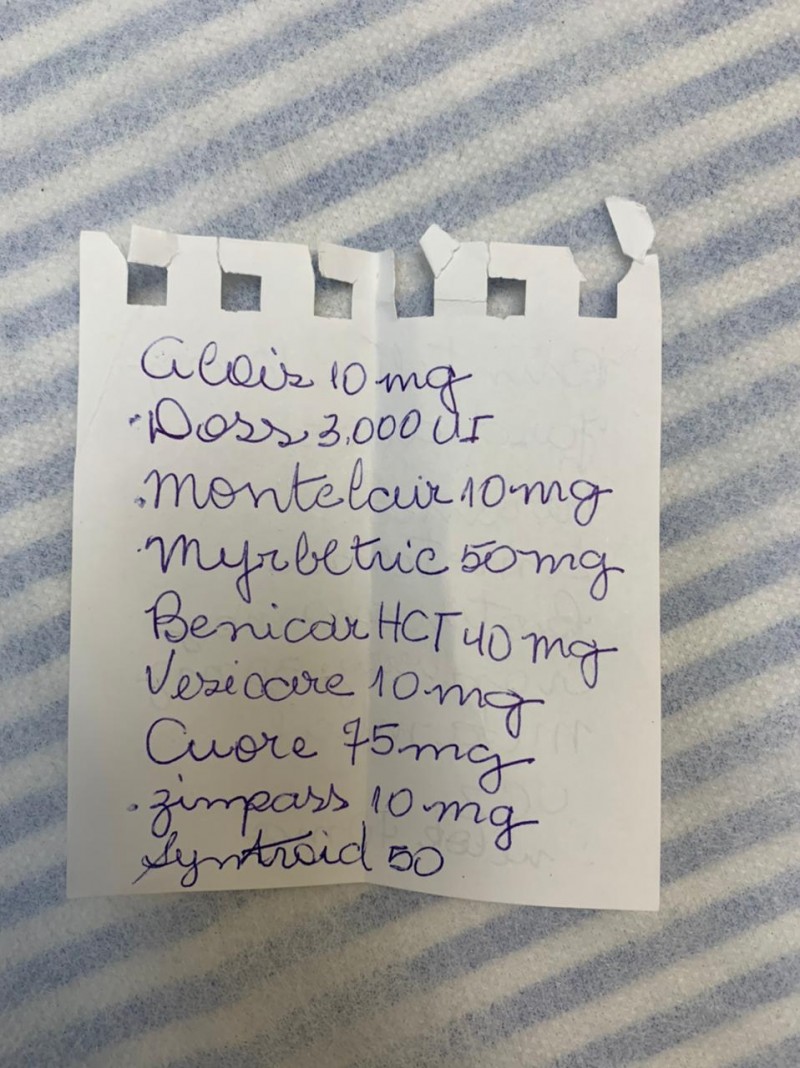 Alois 10 mg
· Doss 3.000 UI
. Montelair 10 mg
· Myrbetric 50 mg
Benicar HCT 40 mg
Vesicare 10 mg
Cuore 75 mg
. Zimpass 10 mg
Syntroid 50